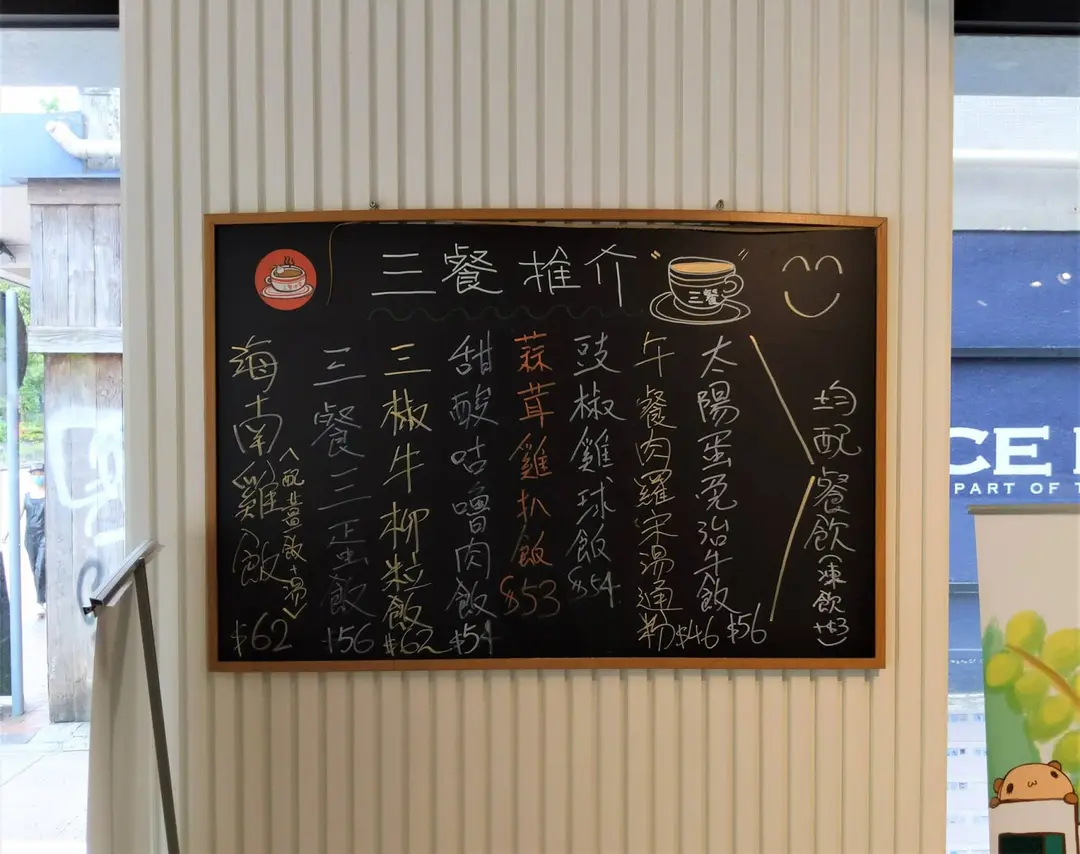 三餐推介
三餐
海南雞飯 $62
<配薑飯+湯>
三餐三蛋飯 $56
三椒牛柳粒飯 $62
甜酸咕嚕肉飯 $54
蒜茸雞扒飯 $53
豉椒雞球飯 $54
午餐肉羅宋湯通粉 $46
太陽蛋免治牛飯 $56
均配餐飲(凍飲+$3)
CE
PART OF T